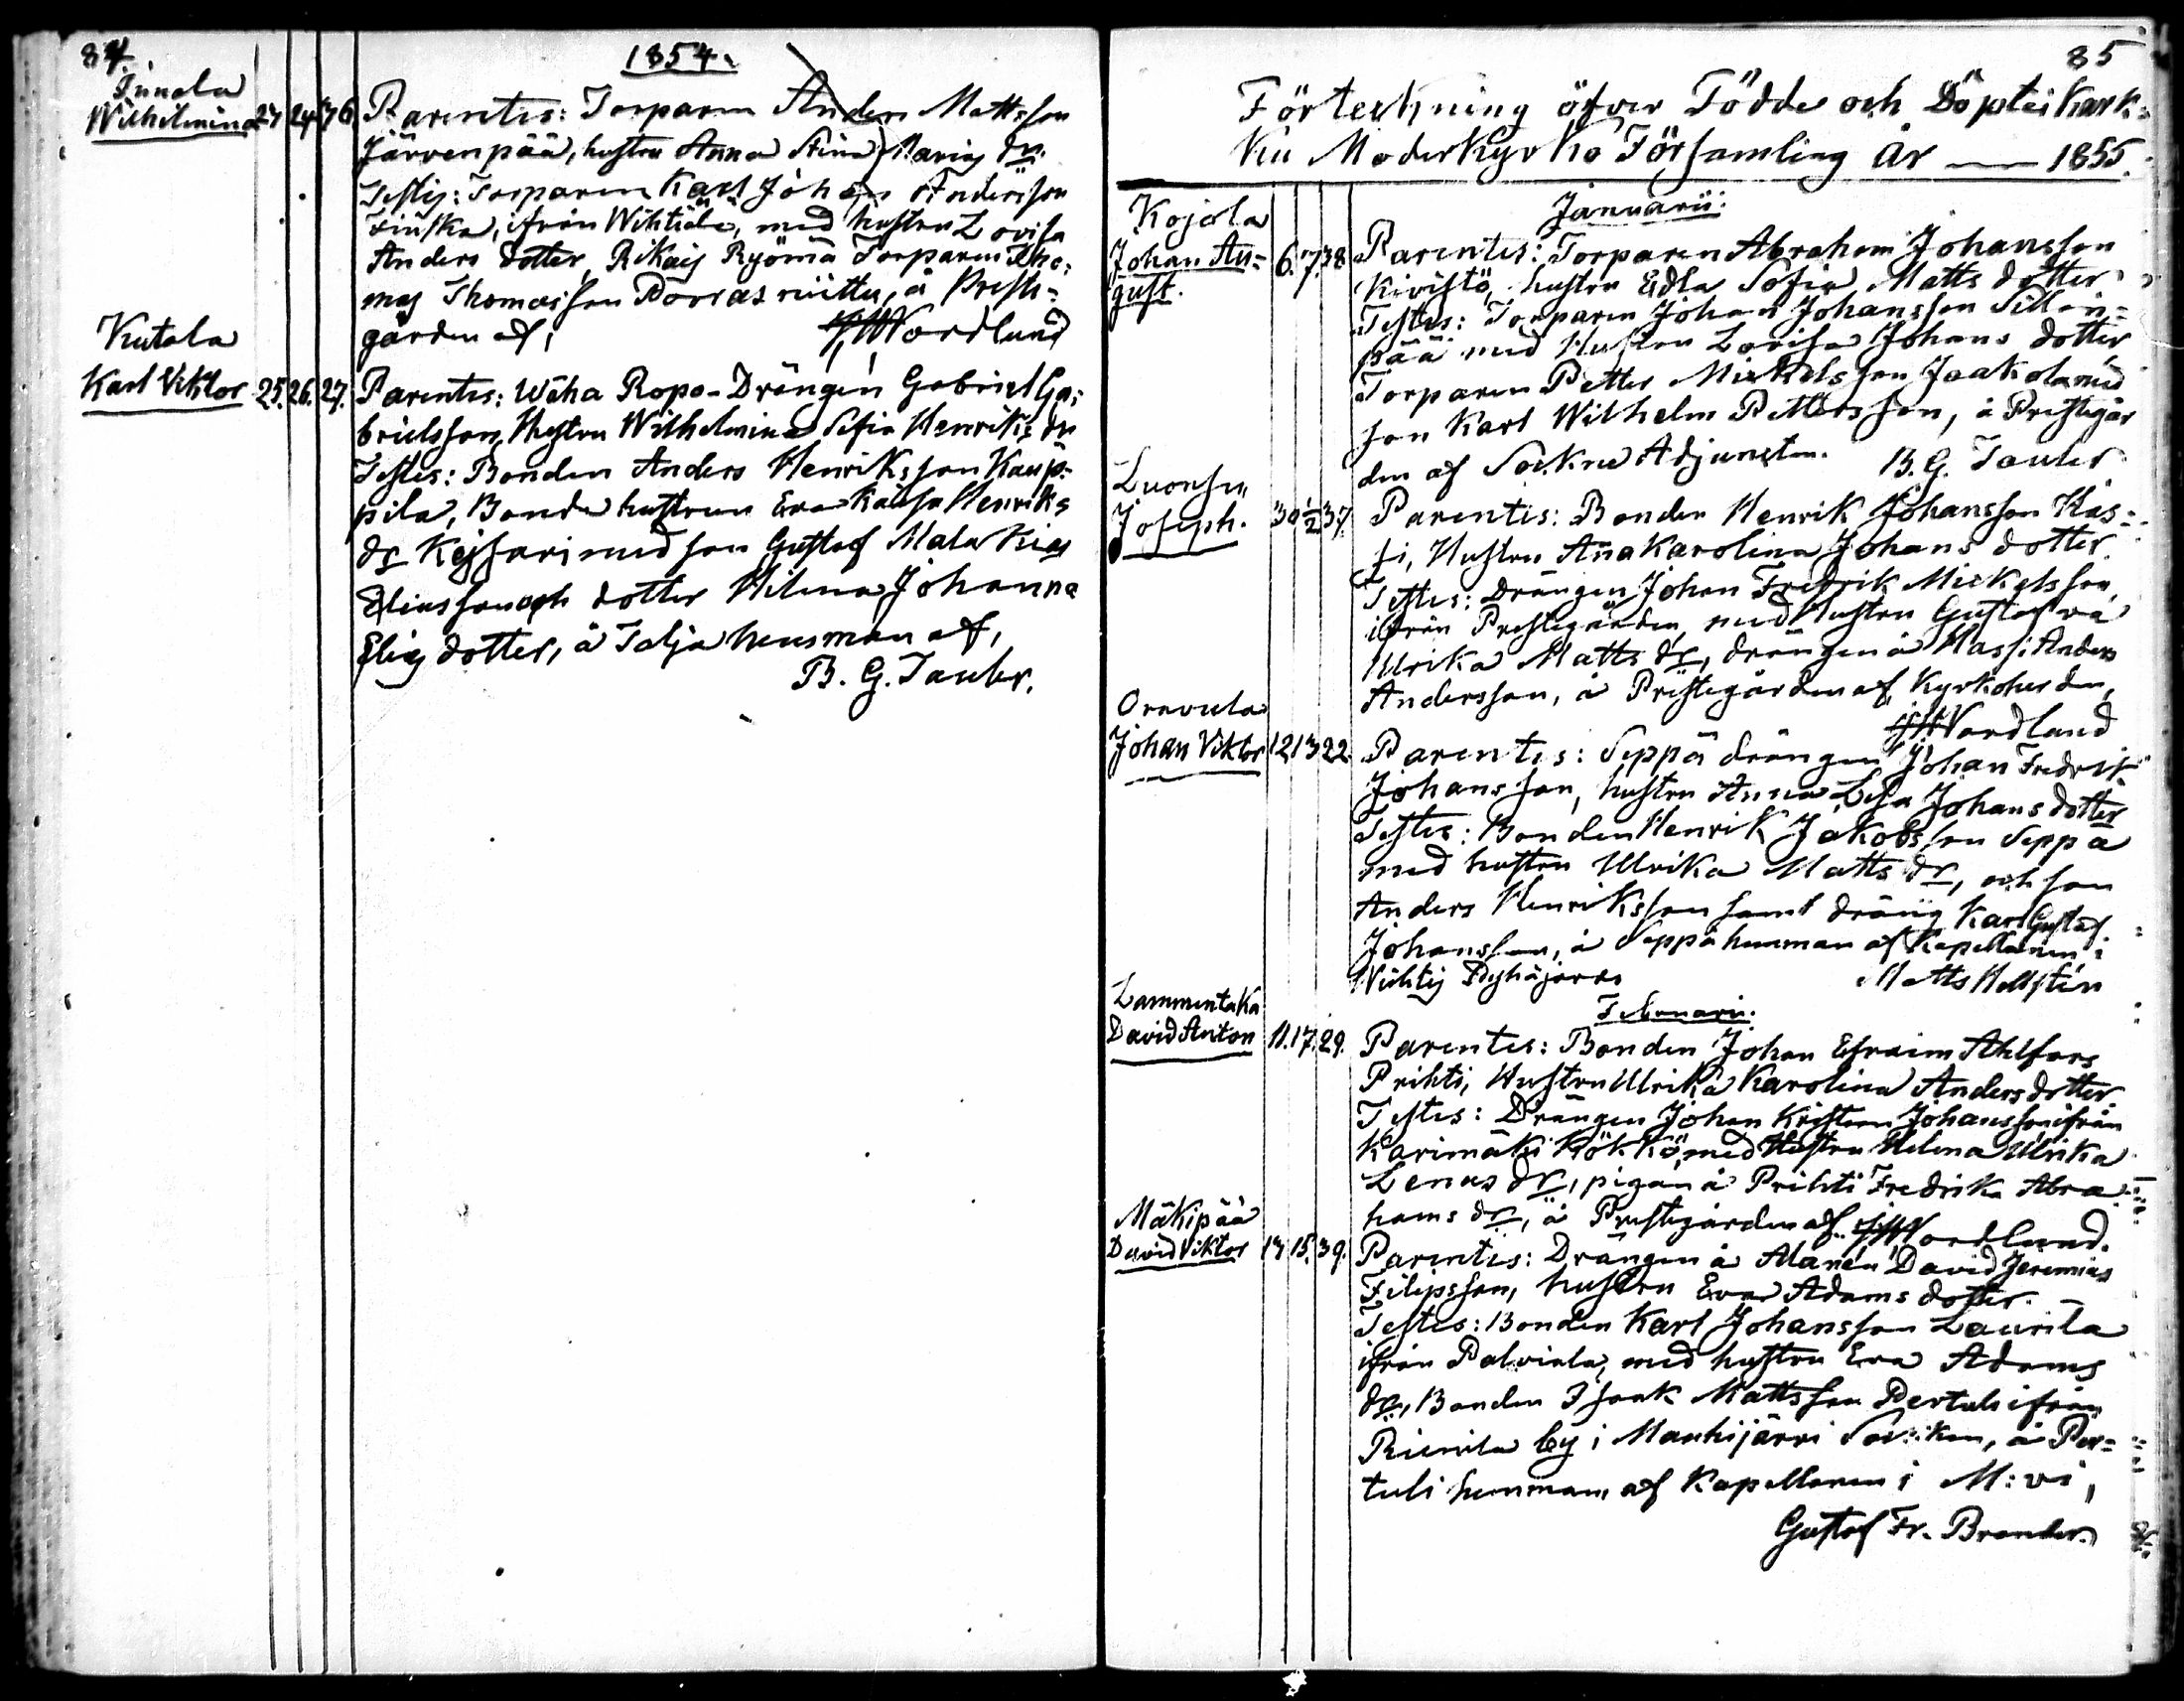 84
1854.
Innala
Wilhelmina 27 24 36
Parentes: Torparen Anders Mattsson
Järvenpää, hustru Anna Stina Marias dr.
Testes: Torparen Karl Johan Andersson
ifrån med hustru Lovisa
Anders dotter, Torparen Tho-
mas Thomasson å Prest-
gården af, Nordlund
Kutala
Karl Viktor 25. 26. 27.
Parentes: Wäha Ropo-Drängen Gabriel Ga-
brielsson, Hustru Wilhelmina Sofia Henriks dr
Testes: Bonden Anders Henriksson Kaup-
pila, Bonde hustrun Eva Kaisa Henriks
dr Kejsari med son Gustaf Malakias
Eliasson och dotter Hilma Johanna
Elias dotter, å Talja hemman af,
B. G. Tauler.
85
Förteckning öfver Födde och Döpte i Kark-
ku Moderkyrko Församling År — 1855.
Januarii:
Kojola
Johan Au-
gust. 6. 7. 38
Parentes: Torparen Abraham Johansson
Kivistö, hustru Edla Sofia Matts dotter
Testes: Torparen Johan Johansson Sillan-
pää med Hustru Lovisa Johans dotter
Torparen Petter Mickelsson Jaakola med
son Karl Wilhelm Pettersson, å Prestegår
den af Sockne Adjuncten. B. G. Tauler
Joseph. 30 1/2 37.
Parentes: Bonden Henrik Johansson Has-
si, Hustru Anna Karolina Johans dotter.
Testes: Drängen Johan Fredrik Mickelsson,
ifrån Prestegården, med Hustru Gustafva
Ulrika Matts dr, drängen å Hassi Anders
Andersson, å Prestegården af Kyrkoherden,
Nordlund
Oravula
Johan Viktor 12 13 22
Parentes: Seppä drängen Johan Fredrik
Johansson, hustru Anna Lisa Johans dotter
Testes: Bonden Henrik Jakobsson Seppä
med hustru Ulrika Matts dr, och son
Anders Henriksson samt dräng Karl Gustaf
Johansson, å Seppä hemman af Kapellanen i
Wichtis Pyhäjärvi Matts Hellstén
Februarii.
Lammentaka
David Anton 11. 17. 29.
Parentes: Bonden Johan Efraim Ahlfors
Prihti, Hustru Ulrika Karolina Anders dotter
Testes: Drängen Johan Kristian Johansson ifrån
Karimäki Kökkö, med Hustru Helena Ulrika
Lenas dr, pigan å Prihti Fredrika Abra
hams dr, å Prestegården af Nordlund.
Mäkipää
David Viktor 13 15. 39.
Parentes: Drängen å Alanen David Jeremias
Filipsson, hustru Eva Adams dotter.
Testes: Bonden Karl Johansson Laurila
ifrån Palviala, med hustru Eva Adams
dr, Bonden Isaak Mattsson Pertuli ifrån
Riienila by i Mauhijärvi Socken, å Per-
tuli hemman, af Kapellanen i M:vi,
Gustaf Fr. Brander.